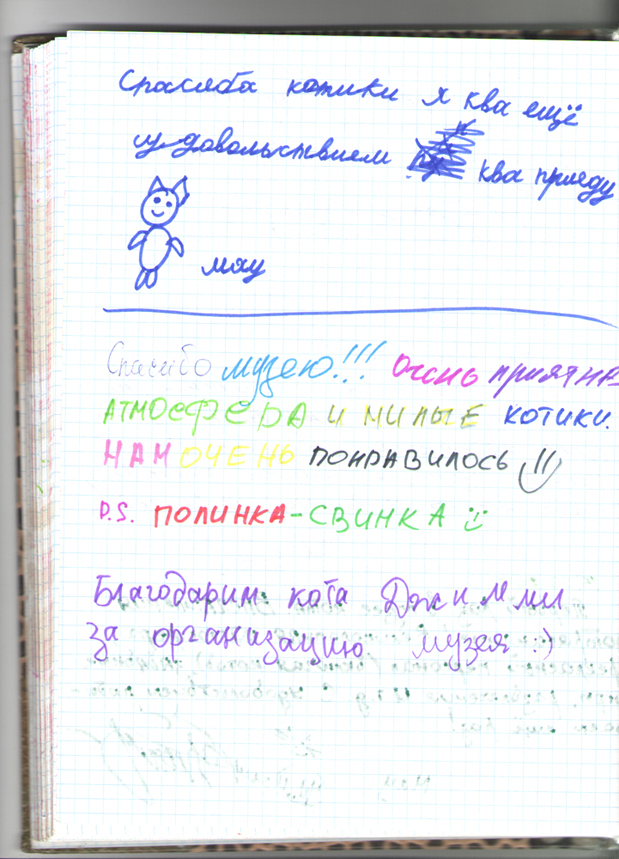 Спасиба котики я ква ещё
удовольствием ква приеду
мяу
Спасибо музею!!! Очень приятная
АТМОСФЕРА И МИЛЫЕ КОТИКИ.
НАМ ОЧЕНЬ ПОНРАВИЛОСЬ !!
P.S. ПОЛИНКА-СВИНКА :)
Благодарим кота Джимми
за организацию музея :)